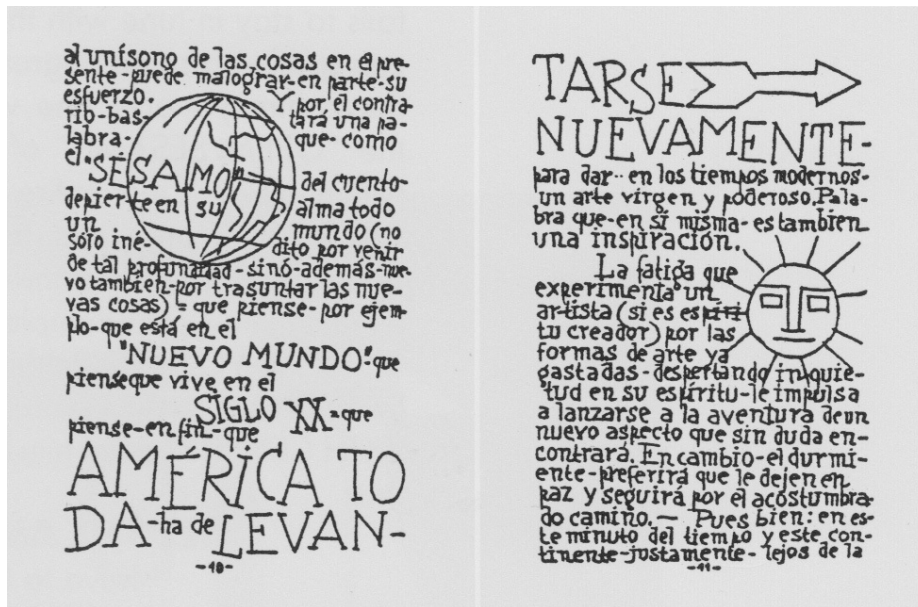 al unísono de las cosas en el pre-
sente-puede malograr-en parte-su
esfuerzo. Y por el contra-
rio-bas- tará una pa-
labra- que-como
el "SÉSAMO" del cuento-
depierte en su alma todo
un mundo (no
sólo iné- dito por venir
de tal profundidad-sinó-además-nue-
vo también-por trasuntar las nue-
vas cosas) = que piense-por ejem-
plo-que está en el
"NUEVO MUNDO": que
piense que vive en el
SIGLO XX = que
piense-en fin-que
AMÉRICA TO
DA-ha de LEVAN-
-10-
TARSE
NUEVAMENTE-
para dar-en los tiempos modernos-
un arte virgen y poderoso. Pala-
bra que-en sí misma-es también
una inspiración.
La fatiga que
experimenta un
artista (si es espíri-
tu creador) por las
formas de arte ya
gastadas-despertando inquie-
tud en su espíritu-le impulsa
a lanzarse a la aventura de un
nuevo aspecto que sin duda en-
contrará. En cambio-el durmi-
ente-preferirá que le dejen en
paz y seguirá por el acostumbra-
do camino.— Pues bien: en es-
te minuto del tiempo y este con-
tinente-justamente-lejos de la
-11-